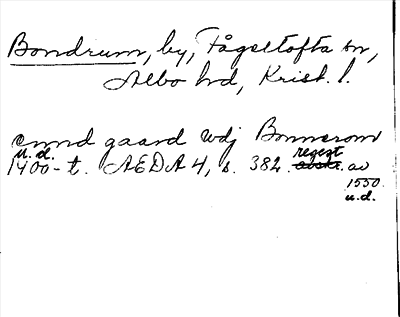 Bondrum, by, Fågeltofta sn,
Albo hd, Krist. l.
ennd gaard wdj Bonnerom
u.d.
1400-t. AEDA 4, s. 382. regest av
1550
u.d.